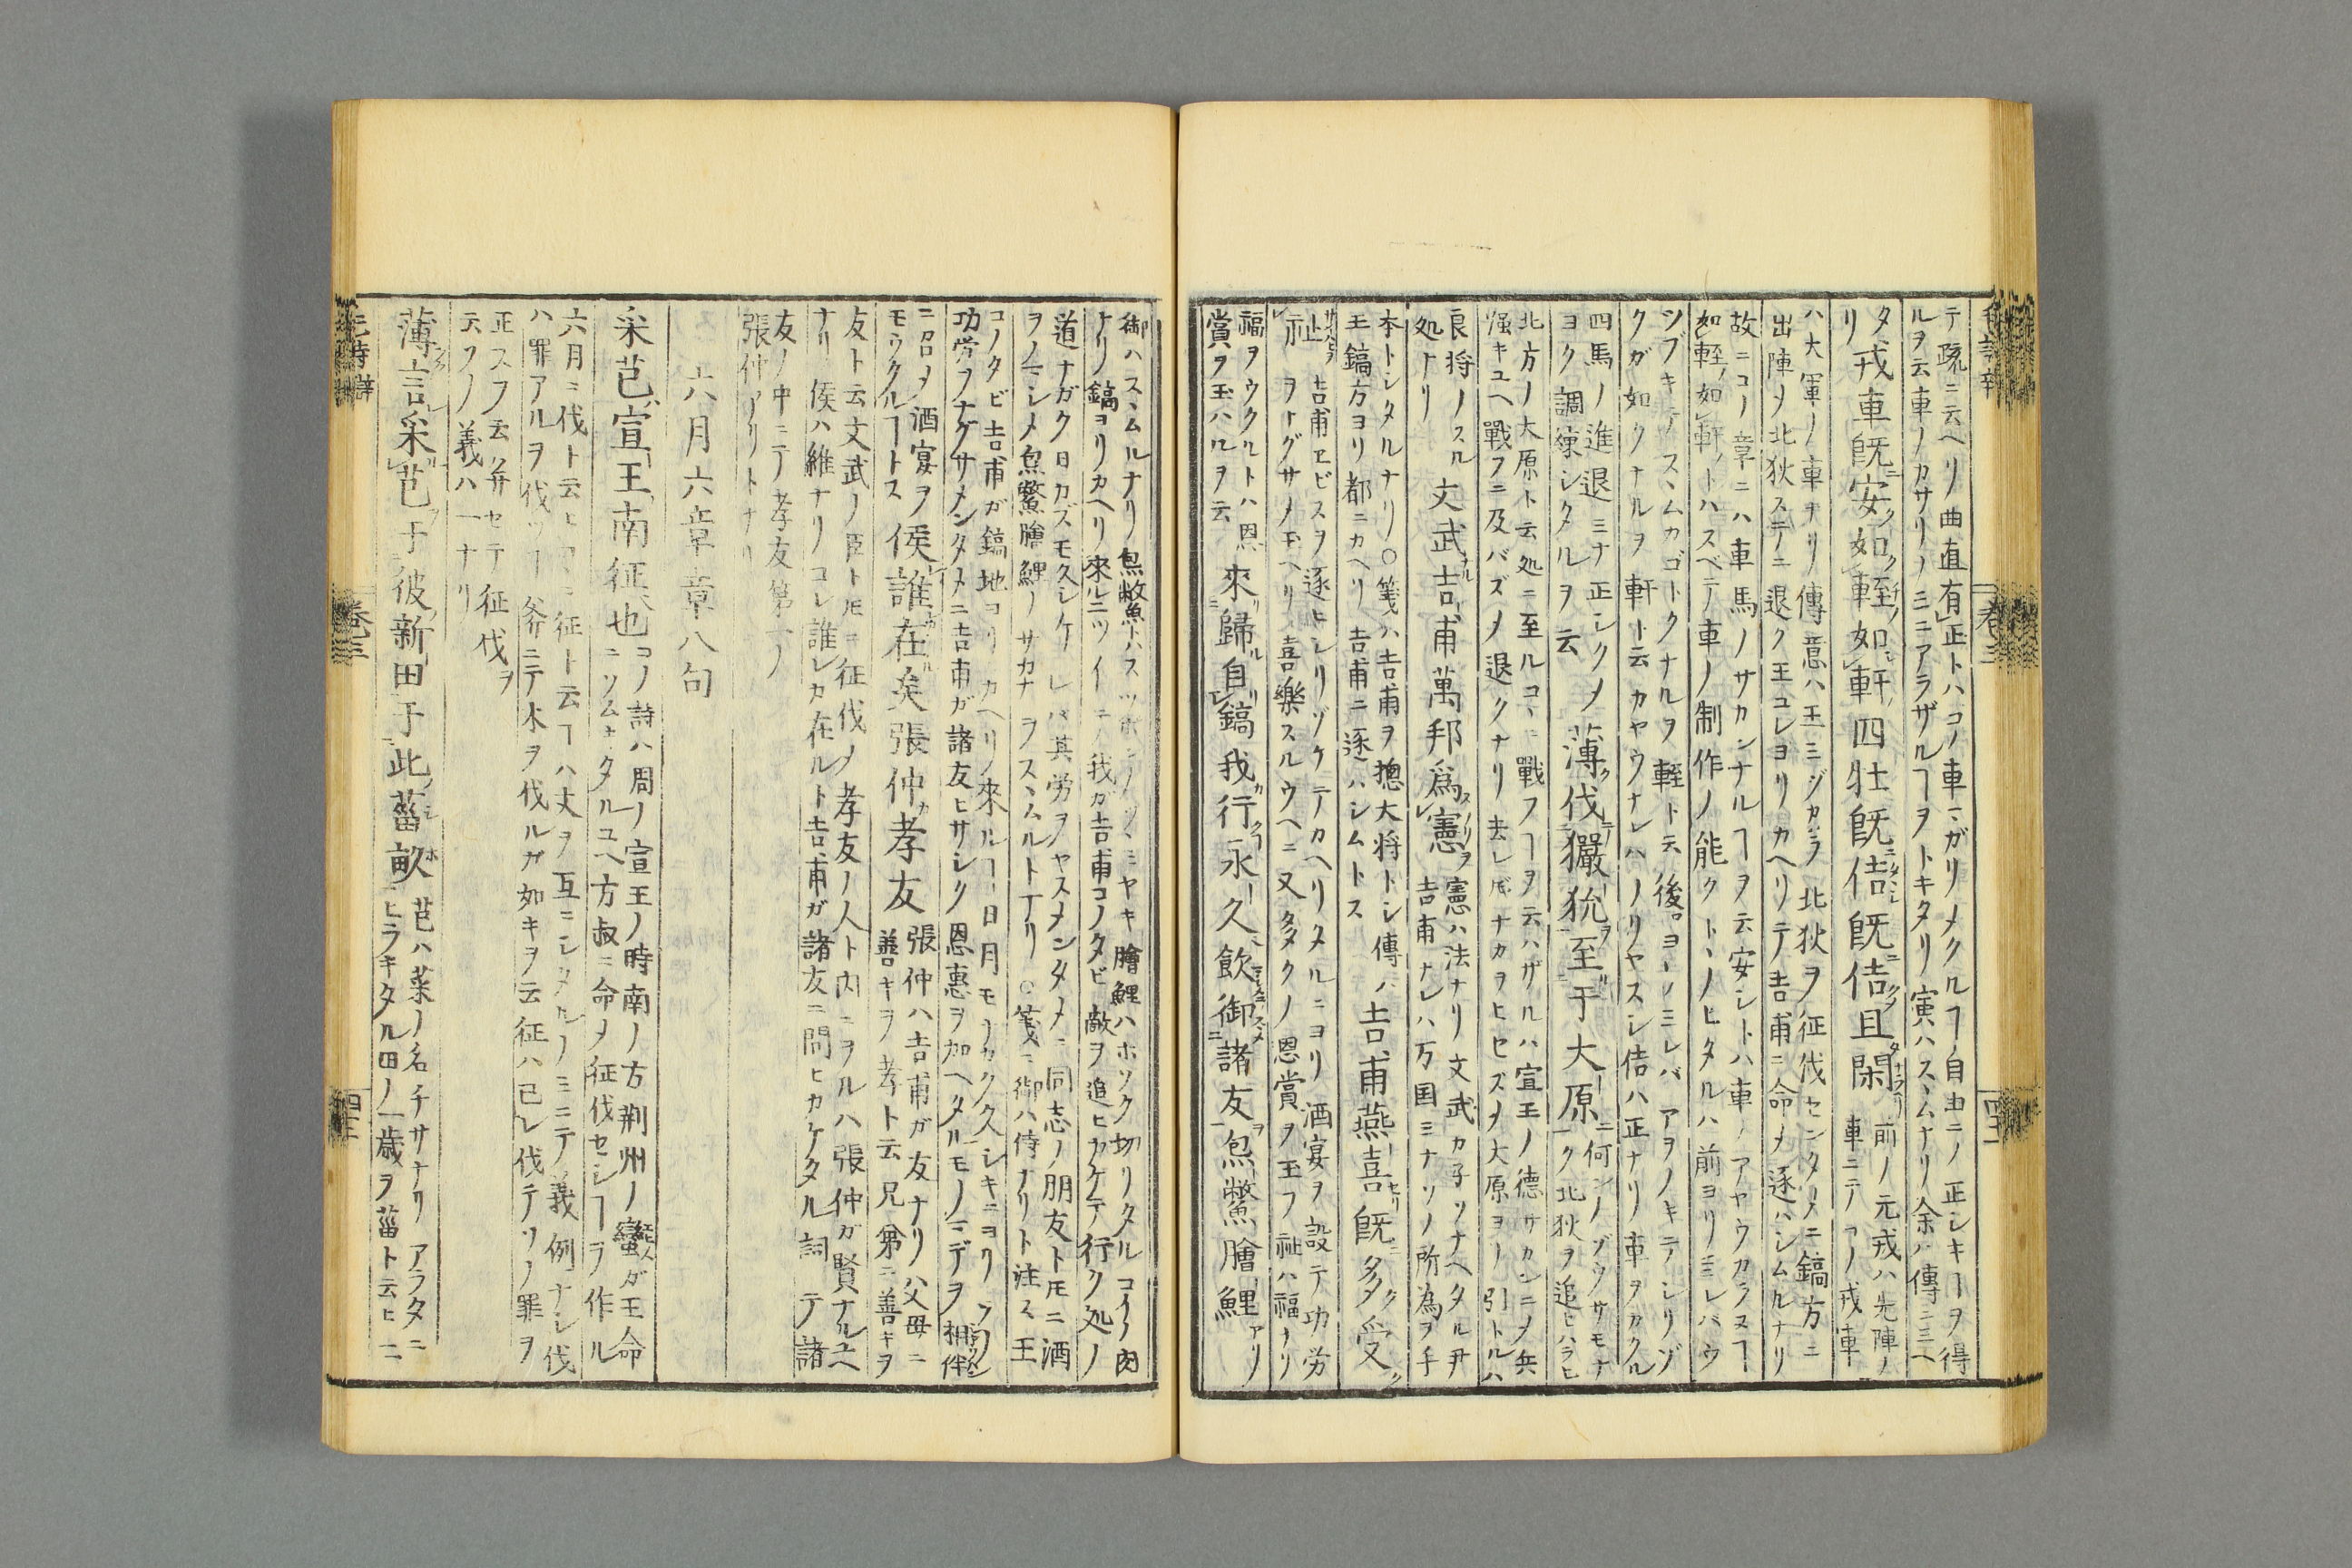 テ疏ニ云ヘリノ曲直有正トハコノ車ニガリメクルヿ自由ニノ正シキヿヲ得
ルヲ云車ノカサリノミニアラザルヿヲトキタリ寅ハスヽムナリ余ハ傳ニ三ヘ
タリ
戎車旣安如輊如軒四牡旣佶旣佶且閑
前ノ元戎ハ先陣ノ
車ニテコノ戎車
ハ大軍ノ車ナリ傳意ハ王ミヅカラ北狄ヲ征伐センタメニ鎬方ニ
出陣メ北狄ステニ退ク王コレヨリカヘリテ吉甫ニ命メ逐ハシムルナリ
故ニコノ章ニハ車馬ノサカンナルヿヲ云安シトハ車ノアヤウカラヌヿ
如輊如軒トハスベテ車ノ制作ノ能クトヽノヒタルハ前ヨリミレバウ
ツブキテスヽムカゴトクナルヲ輊ト云後ヨリミレバアヲノキテシリゾ
クガ如クナルヲ軒ト云カヤウナレハノリヤスシ佶ハ正ナリ車ヲカクル
四馬ノ進退ミナ正シクメ
ヨク調練シタルヲ云
薄伐玁狁至于大原
何ノゾウサモナ
ク北狄ヲ追ヒハラヒ
北方ノ大原ト云処ニ至ルコヽニ戰フヿヲ云ハザルハ宣王ノ德サカンニメ兵
强キユヘ戰フニ及バズメ退クナリ去レ𪜈ナカヲヒセズメ大原ヨリ引トルハ
良将ノスル
処ナリ
文武吉甫萬邦爲憲
憲ハ法ナリ文武カ子ソナヘタル尹
吉甫ナレハ万国ミナソノ所為ヲ手
本トシタルナリ○箋ハ吉甫ヲ摠大将トシ傳ハ
王鎬方ヨリ都ニカヘリ吉甫ニ逐ハシムトス
吉甫燕喜旣多受
祉
吉甫ヱビスヲ逐ヒシリゾケテカヘリタルニヨリ酒宴ヲ設テ功労
ヲトグサメ玉ヘリ喜樂スルウヘニ又多クノ恩賞ヲ玉フ祉ハ福ナリ
福ヲウクルトハ恩
賞ヲ玉ハルヲ云
來歸自鎬我行永久飮御諸友炰鱉膾鯉
卷三
御ハスヽムルナリ炰鱉魚トハスッポンノツヽミヤキ膾鯉ハホソク切リタルコイノ肉
ナリ鎬ヨリカヘリ來ルニツイテ我カ吉甫コノタビ敵ヲ追ヒカケテ行ク処ノ
道ナガク日カズモ久シケレバ其労ヲヤスメンタメニ同志ノ朋友ト𪜈ニ酒
ヲノマシメ炰鱉膾鯉ノサカナヲスヽムルトナリ○箋ニ御ハ侍ナリト注ス王
コノタビ吉甫ガ鎬地ヨリカヘリ來ルヿ日月モナカク久シキニヨリソノ
功労ヲナグサメンタメニ吉甫ガ諸友ヒサシク恩惠ヲ加ヘタルモノマデヲ相伴
ニ召メ酒宴ヲ
モウクルヿトス
侯誰在矣張仲孝友
張仲ハ吉甫ガ友ナリ父母ニ
善キヲ孝ト云兄弟ニ善キヲ
友ト云文武ノ臣ト𪜈ニ征伐メ孝友ノ人ト内ニヲルハ張仲ガ賢ナルユヘ
ナリ侯ハ維ナリコレ誰レカ在ルト吉甫ガ諸友ニ問ヒカケタル詞テ諸
友ノ中ニテ孝友第一ノ
張仲アリトナリ
六月六章章八句
采芑宣王南征也
コノ詩ハ周ノ宣王ノ時南ノ方荆州ノ蠻ガ王命
ニソムキタルユヘ方叔ニ命メ征伐セシヿヲ作ル
六月ニ伐ト云ヒコヽニ征ト云ヿハ丈ヲ互ニシタルノミニテ義例ナシ伐
ハ罪アルヲ伐ツヿ斧ニテ木ヲ伐ルガ如キヲ云征ハ已レ伐テソノ罪ヲ
正スヲ云并セテ征伐ヲ
云フノ義ハ一ナリ
薄言采芑于彼新田于此菑畝
芑ハ菜ノ名チサナリアラタニ
ヒラキタル田ノ一歳ヲ菑ト云ヒ二
毛詩辭
卷三